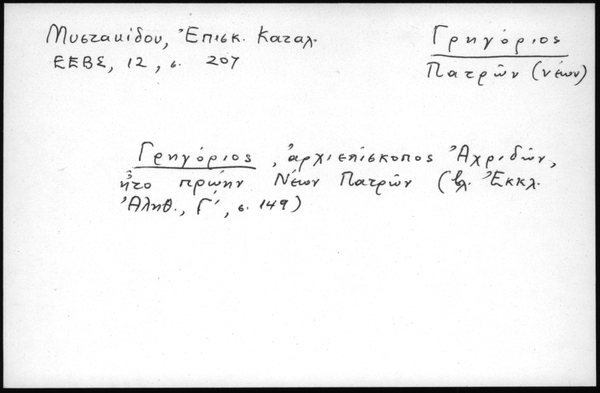 Μυστακίδου, Ἐπισκ. Καταλ.
ΕΕΒΣ, 12, σ. 207
Γρηγόριος
Πατρῶν (νέων)
Γρηγόριος, ἀρχιεπίσκοπος Ἀχριδῶν,
ἦτο πρώην Νέων Πατρῶν (βλ. Ἐκκλ.
Ἀληθ., Γ', σ. 149)